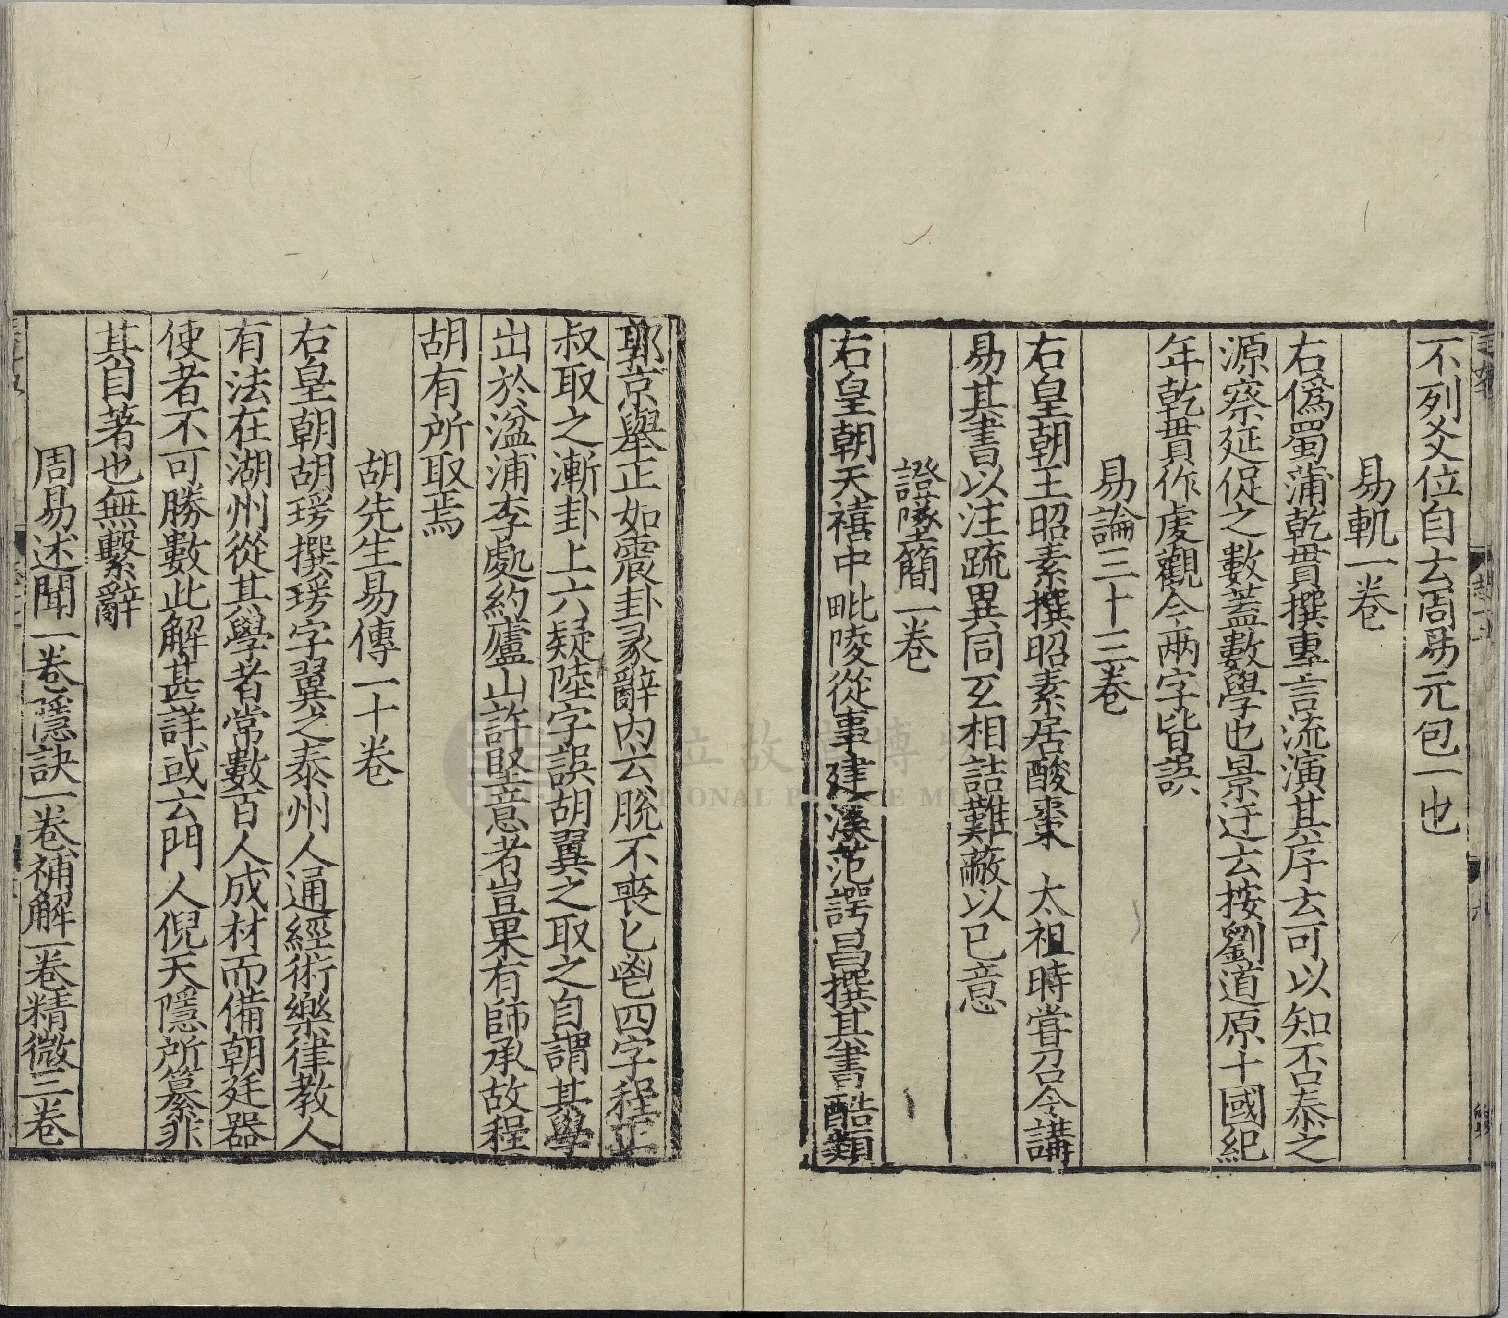 不列爻位自云周易元包一也
易軌一卷
右僞蜀蒲乾貫撰專言流演其序云可以知否泰之
源察延促之數蓋數學也景迂云按劉道原十國紀
年乾貫作虔觀今兩字皆誤
易論三十三卷
右皇朝王昭素撰昭素居酸棗 太祖時嘗召令講
易其書以注疏異同互相詰難蔽以己意
證墜簡一卷
右皇朝天禧中毗陵從事建溪范諤昌撰其書酷類
郭京舉正如震卦彖辭內云脫不喪匕鬯四字程正
叔取之漸卦上六疑陸字誤胡翼之取之自謂其學
出於湓浦李處約廬山許堅意者豈果有師承故程
胡有所取焉
胡先生易傳一十卷
右皇朝胡瑗撰瑗字翼之泰州人通經術樂律教人
有法在湖州從其學者常數百人成材而備朝廷器
使者不可勝數此解甚詳或云門人倪天隱所纂非
其自著也無繫辭
周易述聞一卷隱訣一卷補解一卷精微三卷